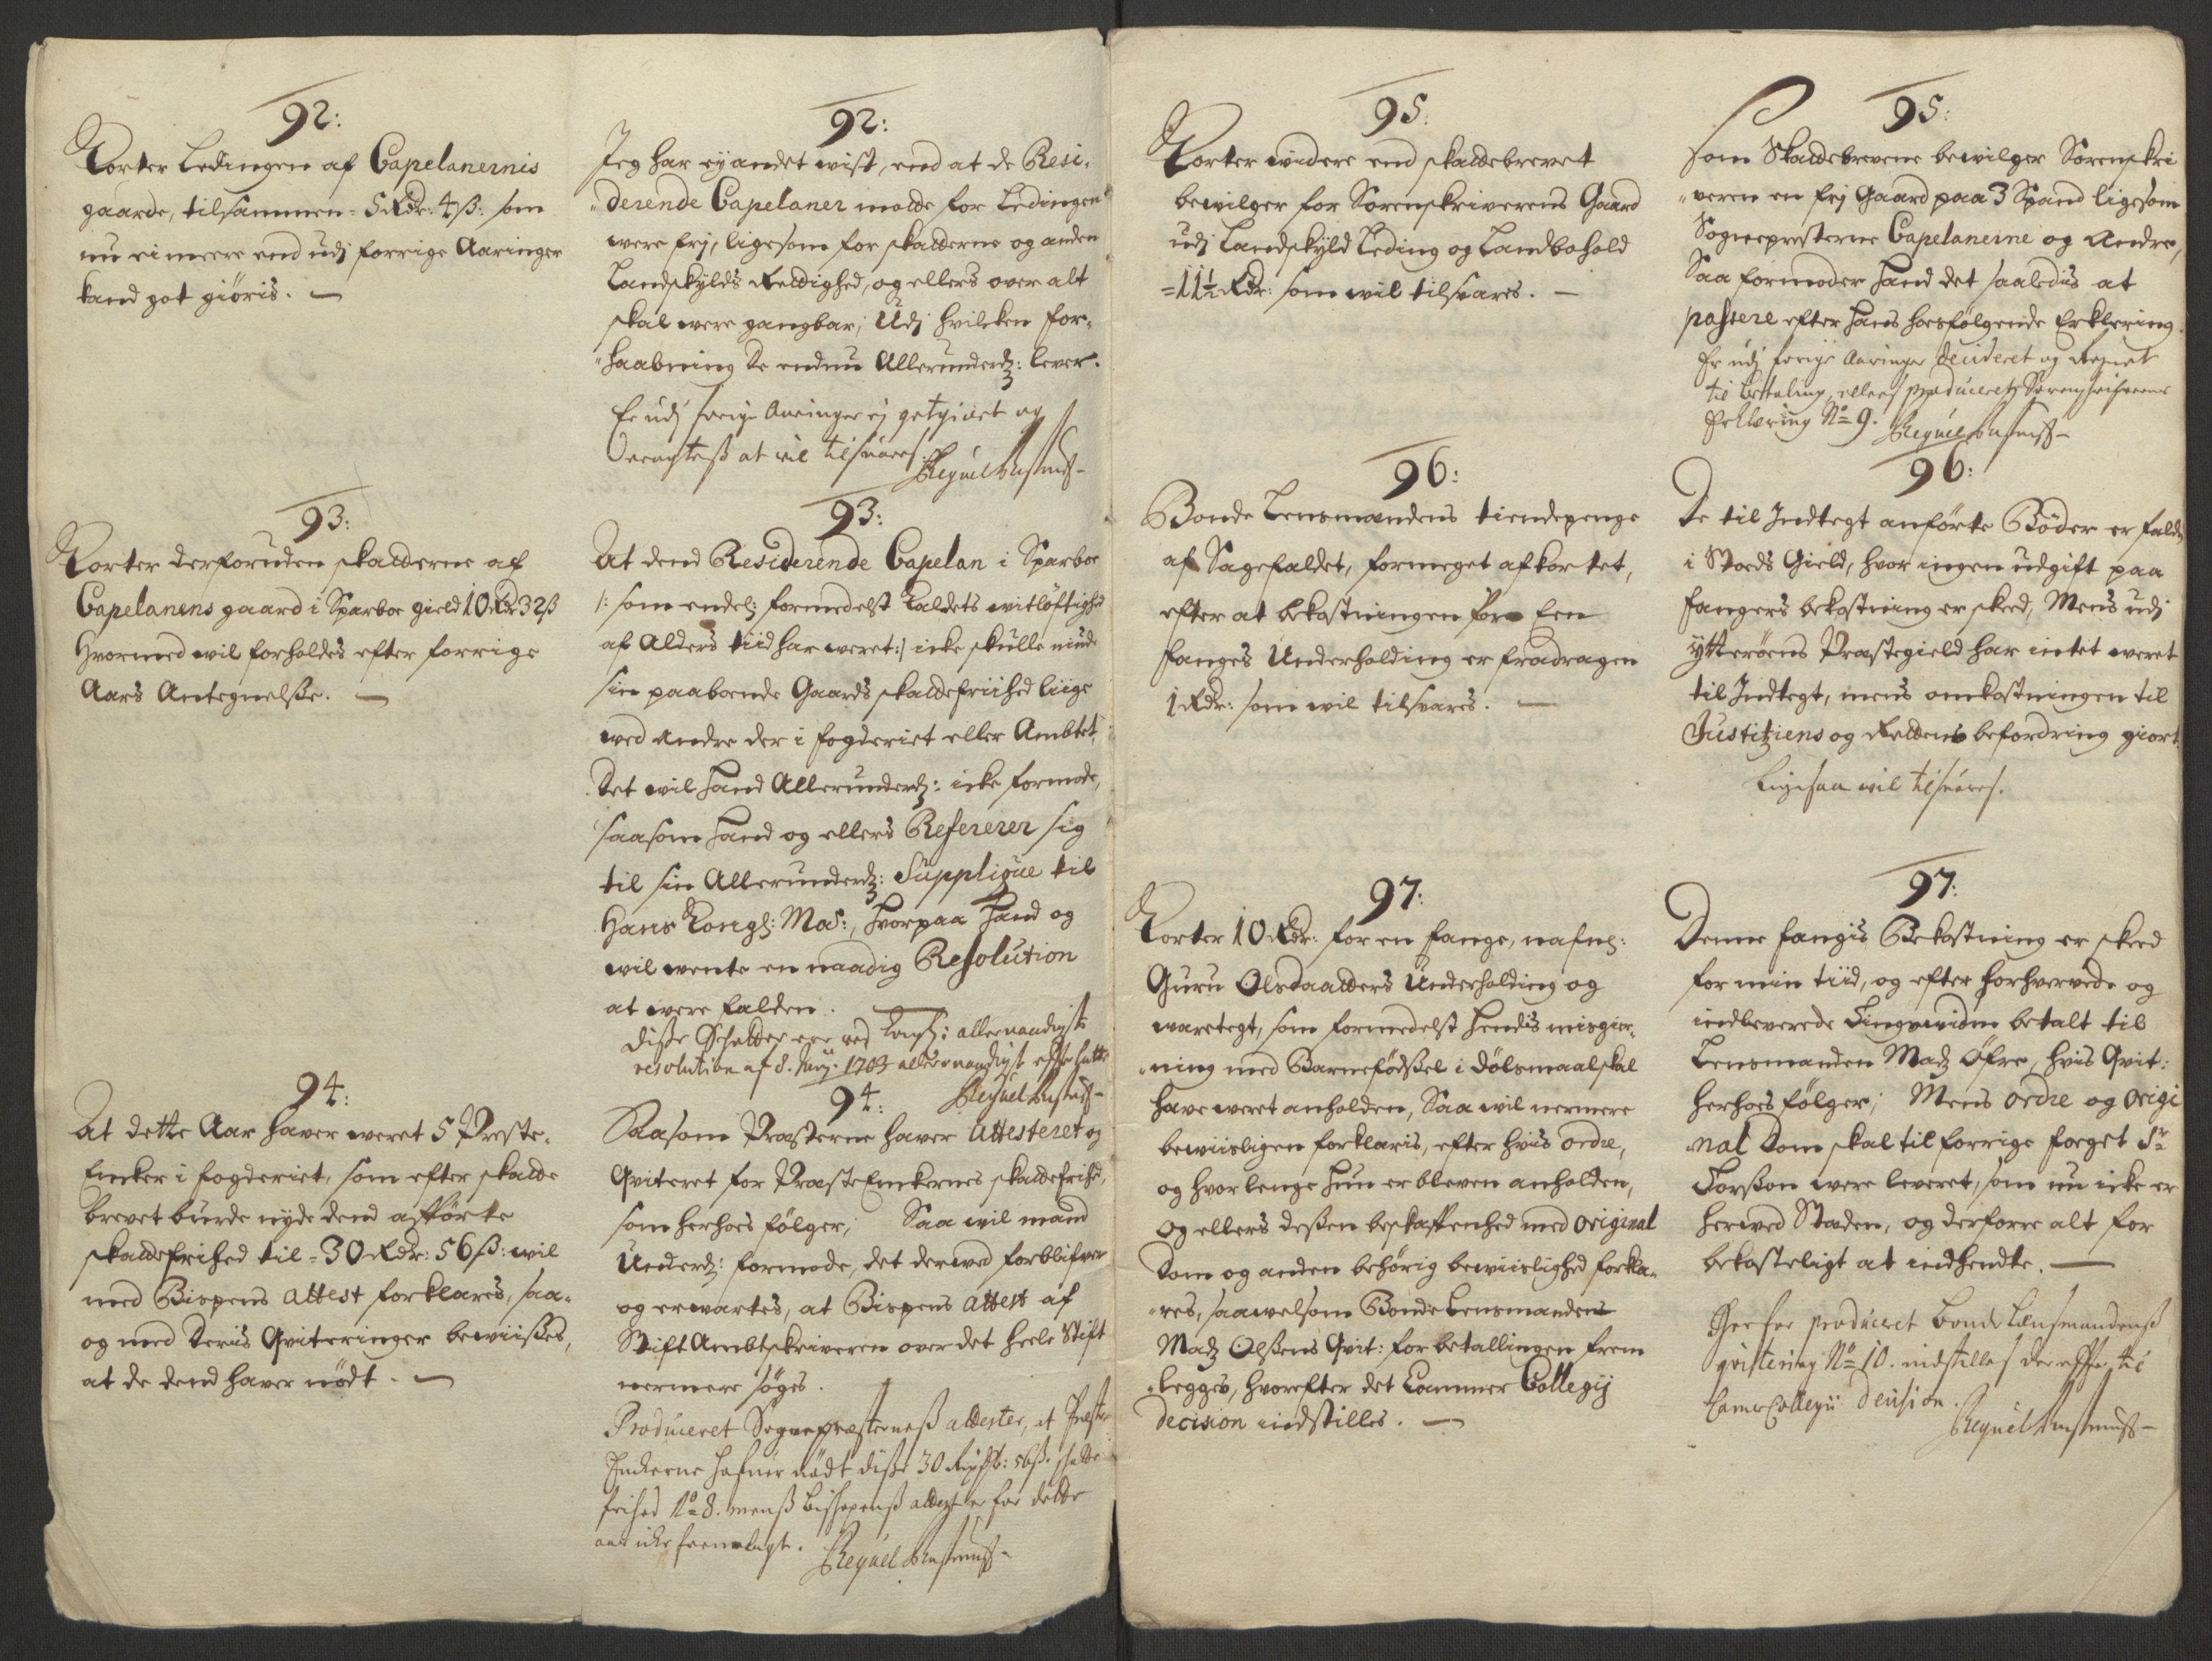 92:
Korter Ledingen af Capelanernis
gaarde, tilsammen = 5 Rdr: 4 ß: som
nu ei meere end udj forrige Aaringer
kand got giöris. —
93:
Korter derforuden skatterne af
Capelanens gaard i Sparboe gield 10 Rdr 32 ß
hvormed wil forholdes efter forrige
Aars Antegnelße. —
94:
At dette Aar haver weret 5 Preste-
Encker i fogderiet, som efter skatte
brevet burde nyde dend afförte
skattefrihed til = 30 Rdr: 56 ß: wil
med Bispens attest forklares, saa-
og med deris Qviteringer bewiißes,
at de dend haver nödt. —
92:
Jeg har ey andet wist, end at de Resi-
derende Capelaner motte for Ledingen
were frj, ligesom for skatterne og anden
Landskylds Rettighed, og ellers over alt
skal were gangbar; Udj hvilcken for-
haabning de endnu Allerunderd: lever.
Er udj forige Aaringer ej getgiort og
at vil tilsvares.
93:
At dend Residerende Capelan i Sparboe
/: som endel: formedelst Kaldets witlöftighed
af Alders tiid har weret :/ icke skulle niude
sin paaboende Gaards skattefriihed liige
wed andre der i fogderiet eller Ambtet,
Det wil hand Allerunderd: icke formode,
saasom hand og ellers Refererer sig
til sin Allerunderd: Supplique til
Hans Kongl: Mas:, hvorpaa hand og
wil wente en naadig Resolution
at were falden. —
Disse Schatter ere ved Kongl: allernaadigste
resolution af 8. 1703 allernaadigst efterlatt
94:
Saasom Præsterne haver attesteret og
Qviteret for Præste Enckernes skattefrihed,
som herhos fölger; Saa wil mand
Underd: formode, det derwed forblifver
og erwartes, at Bispens attest af
Stift Ambtskriveren over det heele Stift
nermere söges.
Produceret Sognepræsterneß attester, at Præste
Enckerne hafuer nödt diße 30 Rixdr: 56 ß. skatte
frihed No 8. menß Bischopenß attest er for dette
aar icke fremlagt.
95
Korter widere end skattebrevet
bewilger for Sorenskriverens Gaard
udj Landskyld Leding og Landbohold
= 11½ Rdr: som wil tilsvares. —
96:
Bonde Lensmandens tiendepenge
af Sagefaldet, formeget afkortet,
efter at bekostningen for Een
fanges Underholding er fradragen
1 Rdr: som wil tilsvares. —
97:
Korter 10 Rdr: for en fange, nafnl:
Guru Olsdaatters Underholding og
waretegt, som formedelst hendis misgier-
ning med Barnefödßel i dölsmaal skal
have weret anholden, Saa wil nermere
bewiisligen forklaris, efter hvis ordre,
og hvor lenge hun er bleven anholden,
og ellers deßen beskaffenhed med original
Dom og anden behörig bewiislighed forkla-
res, saawelsom Bonde Lensmanden
Madz Olßens Qvit: for betallingen frem
legges, hvorefter det Cammer Collegij
decision indstilles. —
95:
Som Skattebrevene bewilger Sorenskri
veren en frj Gaard paa 3 Spand ligesom
Sognepresterne Capelanerne og Andre,
Saa formoder hand det saaledis at
passere efter hans hosfölgende Erklering.
Er udj forige Aaringer decideret og
til betaling, ellers produceret Sorenschrifverens
Erklæring No 9.
96:
De til Indtegt anförte Böder er falden
i Stods Gield, hvor ingen udgift paa
fangers bekostning er skeed, Mens udj
ytterörens Præstegield har intet weret
til Indtegt, mens omkostningen til
Justitziens og Rettens befordring giort
Ligesaa wil tilsvares.
97:
Denne fangis Bekostning er skeed
for min tiid, og efter forhvervede og
indleverede Tingswidne betalt til
Lensmanden Madz Öfre, hvis Qvit:
herhos fölger; Mens ordre og origi
nal Dom skal til forrige foget Sr
Torßon were leveret, som nu icke er
herwed Staden, og derforre alt for
bekosteligt at indhendte. —
Herfor produceret Bonde Lensmandenß
qvittering No 10. indstilles derefter til
Camer Collegii decision.